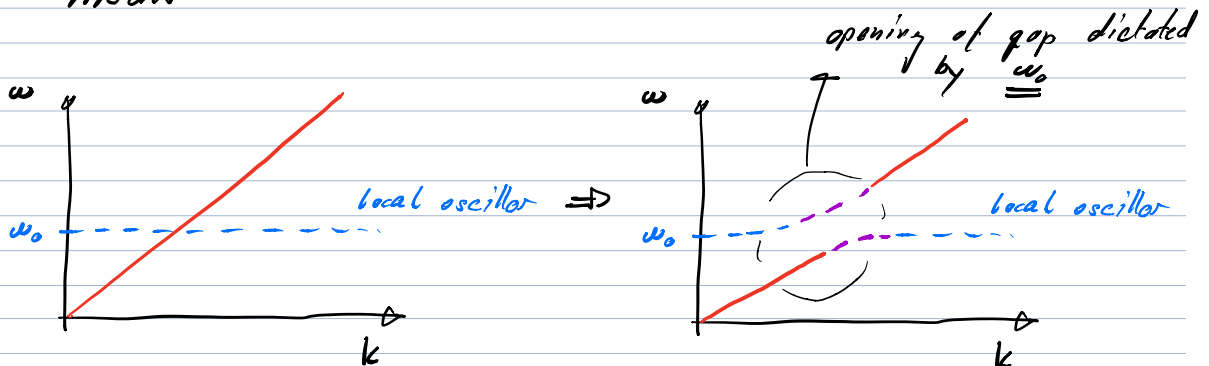 opening of gap dictated
by ω₀
ω
ω₀
local oscillor
k
⇒
ω
ω₀
local oscillor
k